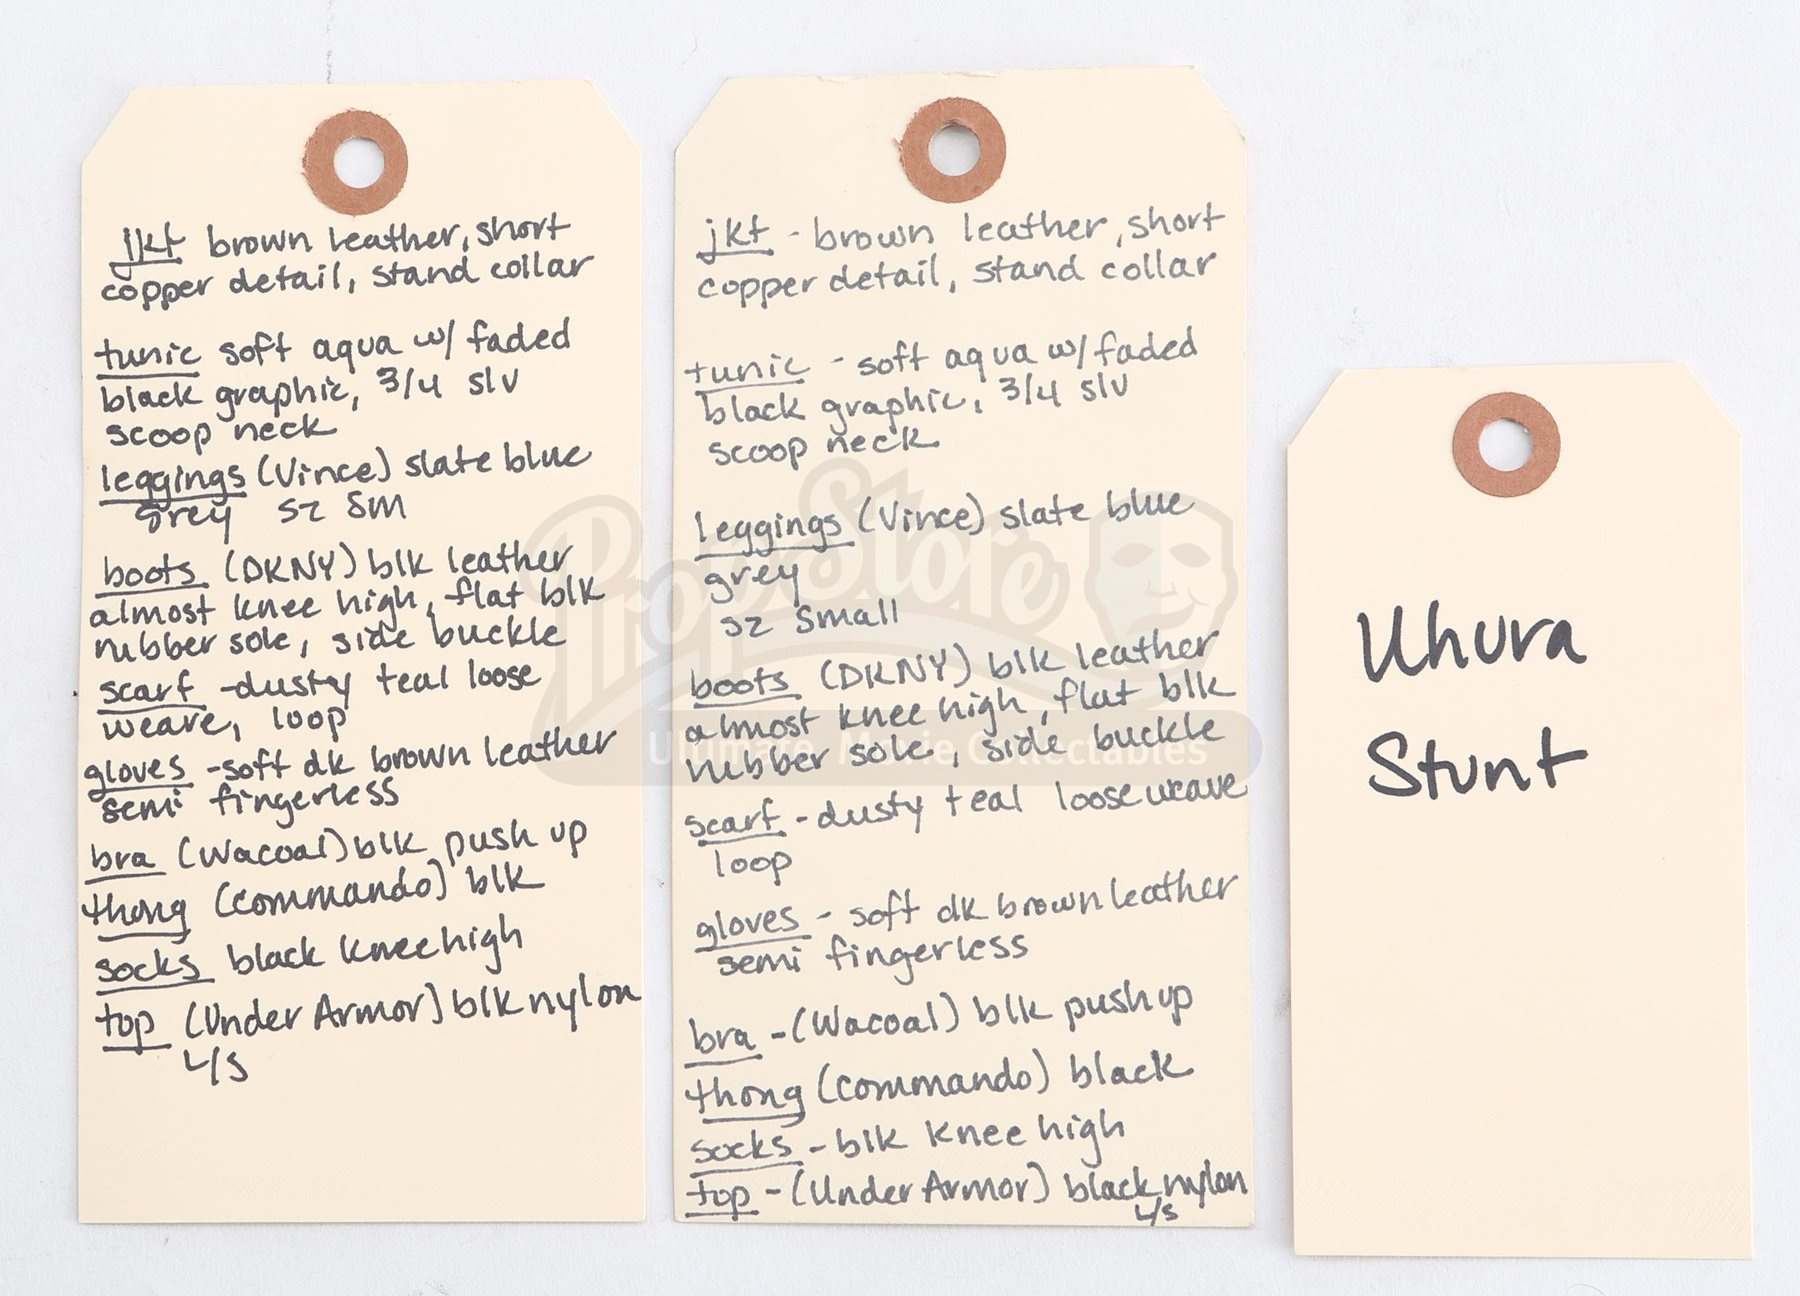 jkt brown leather, short
copper detail, stand collar
tunic soft aqua w/ faded
black graphic, 3/4 slv
scoop neck
leggings (Vince) slate blue
grey sz sm
boots (DKNY) blk leather
almost knee high, flat blk
rubber sole, side buckle
scarf -dusty teal loose
weave, loop
gloves -soft dk brown leather
semi fingerless
bra (Wacoal) blk push up
thong (commando) blk
socks black knee high
top (Under Armor) blk nylon
L/S
jkt - brown leather, short
copper detail, stand collar
tunic - soft aqua w/ faded
black graphic, 3/4 slv
scoop neck
leggings (Vince) slate blue
grey
sz small
boots (DKNY) blk leather
almost knee high, flat blk
rubber sole, side buckle
scarf - dusty teal loose weave
loop
gloves - soft dk brown leather
semi fingerless
bra - (Wacoal) blk push up
thong (commando) black
socks - blk knee high
top - (Under Armor) black nylon
L/S
Uhura
Stunt
Prop Store
Ultimate Movie Collectables